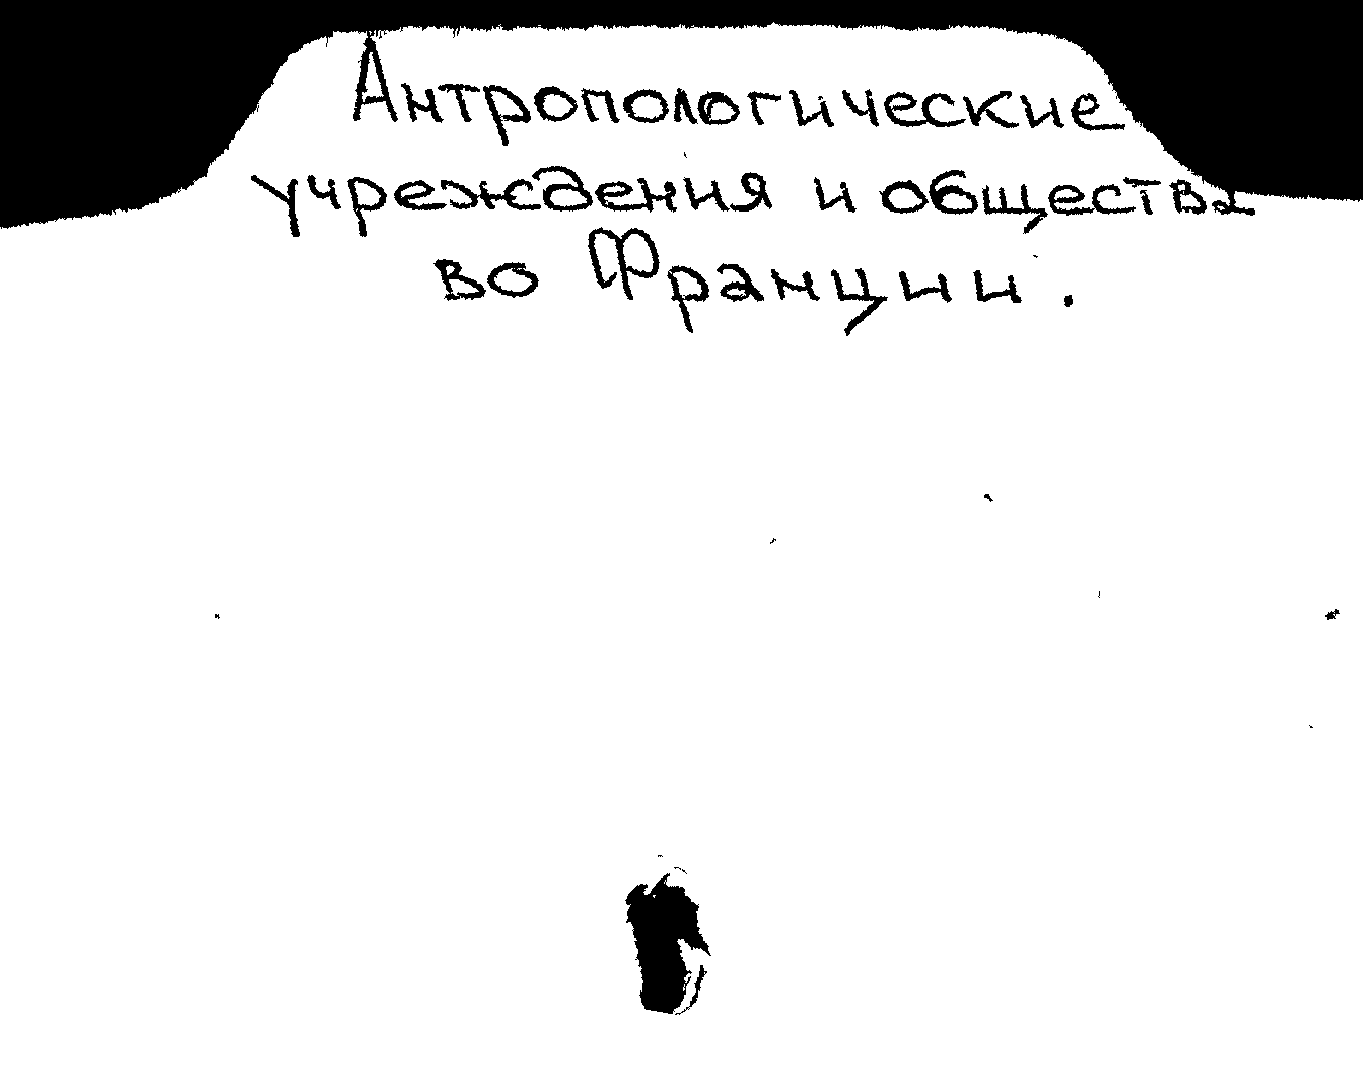 Антропологические
учреждения и общества
во Франции.